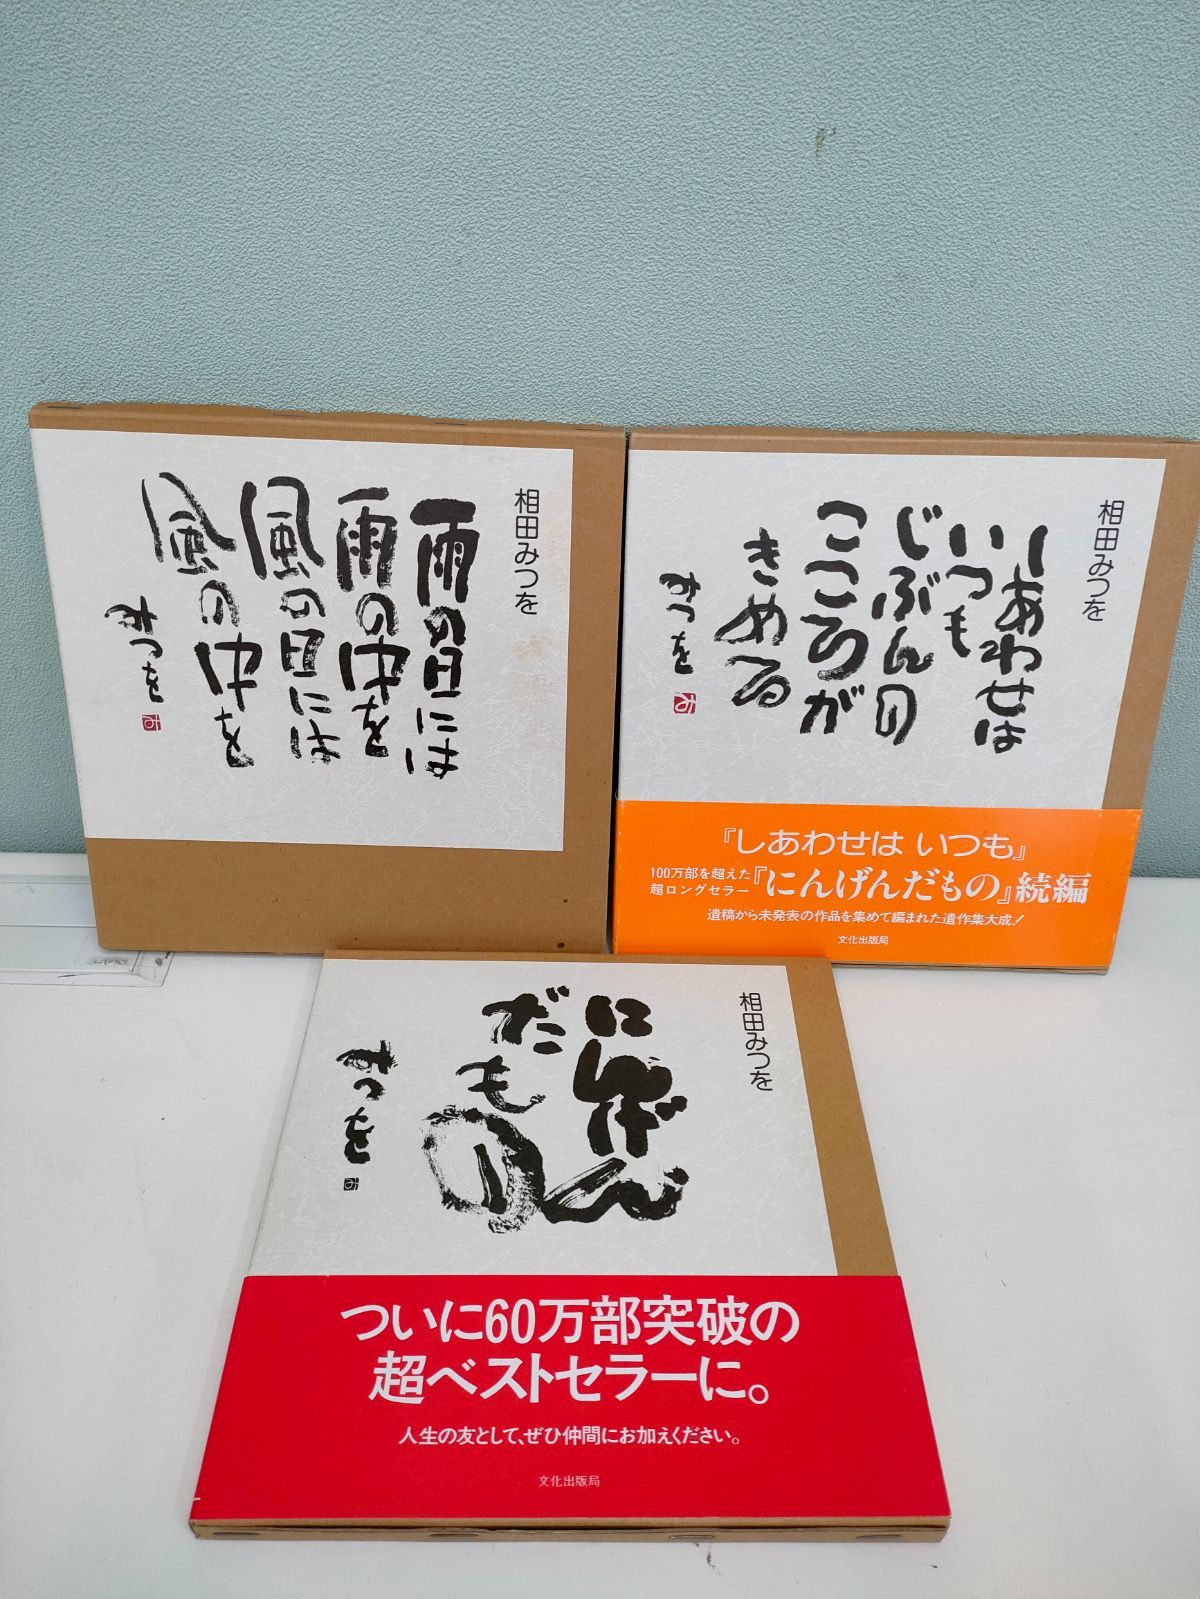 相田みつを
雨の日には
雨の中を
風の日には
風の中を
みつを
み
相田みつを
しあわせは
いつも
じぶんの
こころが
きめる
みつを
み
『しあわせは いつも』
100万部を超えた
超ロングセラー
『にんげんだもの』続編
遺稿から未発表の作品を集めて編まれた遺作集大成！
文化出版局
相田みつを
にんげん
だもの
みつを
み
ついに60万部突破の
超ベストセラーに。
人生の友として、ぜひ仲間にお加えください。
文化出版局